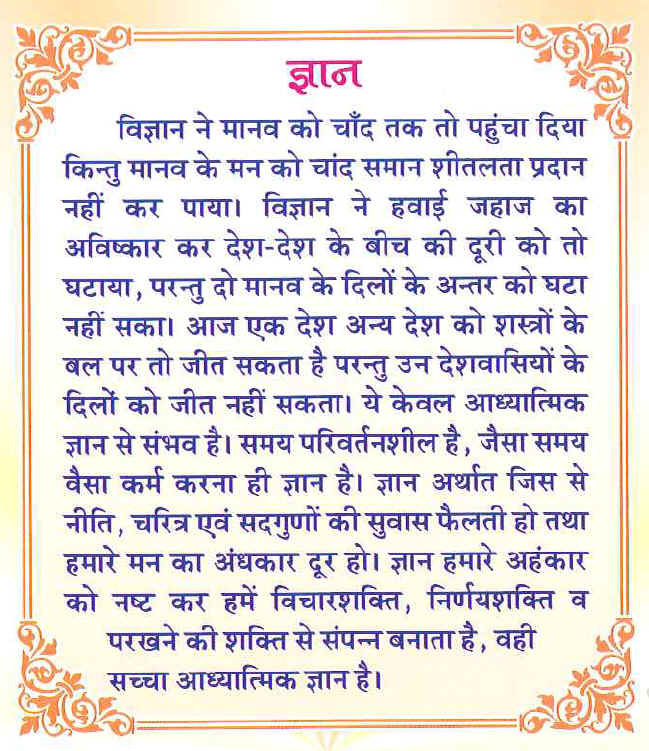 ज्ञान
विज्ञान ने मानव को चाँद तक तो पहुंचा दिया
किन्तु मानव के मन को चांद समान शीतलता प्रदान
नहीं कर पाया। विज्ञान ने हवाई जहाज का
अविष्कार कर देश-देश के बीच की दूरी को तो
घटाया, परन्तु दो मानव के दिलों के अन्तर को घटा
नहीं सका। आज एक देश अन्य देश को शस्त्रों के
बल पर तो जीत सकता है परन्तु उन देशवासियों के
दिलों को जीत नहीं सकता। ये केवल आध्यात्मिक
ज्ञान से संभव है। समय परिवर्तनशील है, जैसा समय
वैसा कर्म करना ही ज्ञान है। ज्ञान अर्थात जिस से
नीति, चरित्र एवं सदगुणों की सुवास फैलती हो तथा
हमारे मन का अंधकार दूर हो। ज्ञान हमारे अहंकार
को नष्ट कर हमें विचारशक्ति, निर्णयशक्ति व
परखने की शक्ति से संपन्न बनाता है, वही
सच्चा आध्यात्मिक ज्ञान है।